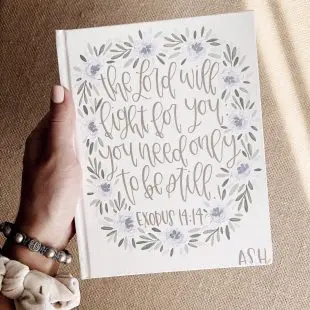 the Lord will
fight for you,
you need only
to be still.
EXODUS 14:14
ASH